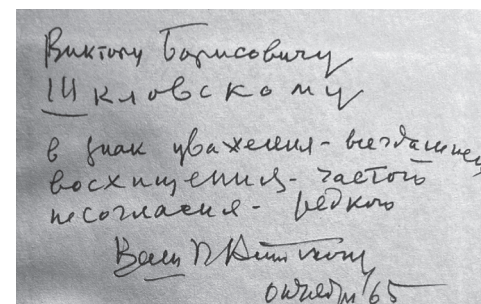 Виктору Борисовичу
Шкловскому
в знак уважения - всегдашнего
восхищения - частого
несогласия - редкого
октябрь 65